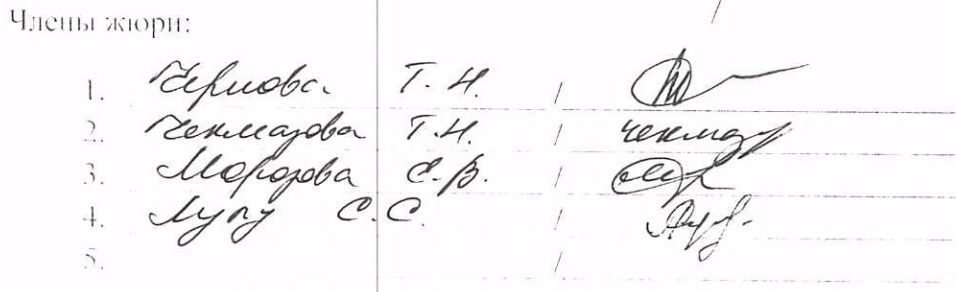 Члены жюри:
1. Чернова Т. Н. /
2. Чекмазова Т.Н. / Чекмаз
3. Морозова Е.В. /
4. Лупу С.С. /
5. /